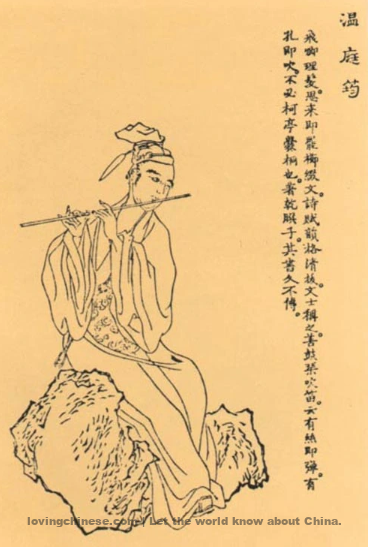 温庭筠
飛卿理髮。思来即罷櫛綴文。詩賦韻格清拔。文士稱之。善鼓琴吹笛。云有絲即彈。有
孔即吹。不必柯亭爨桐也。著乾子。其書久不傳。
lovingchinese.com / Let the world know about China.